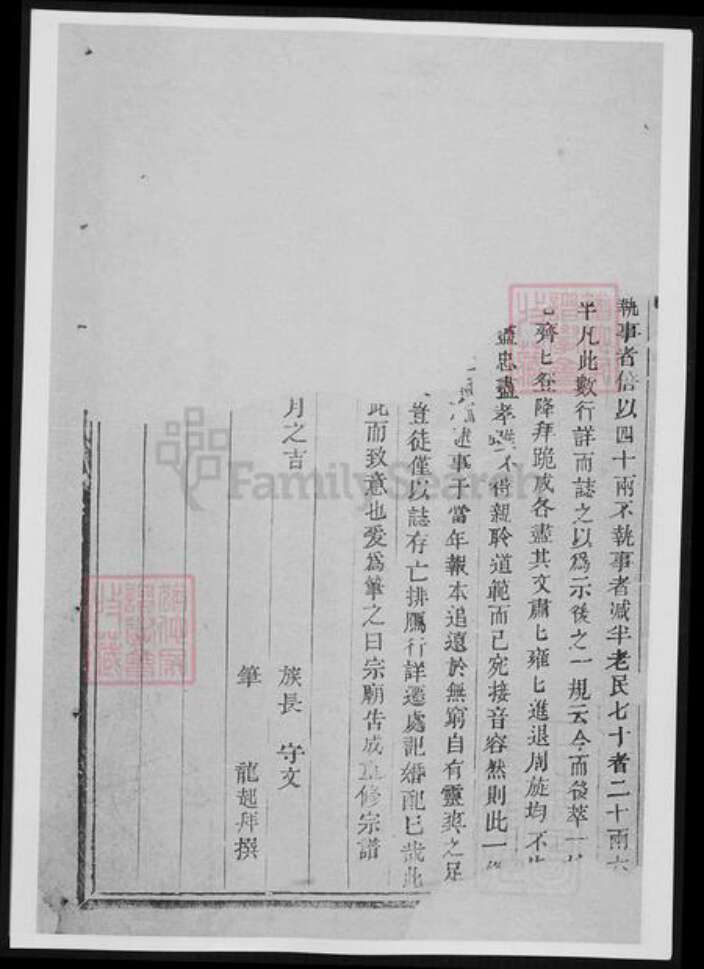 執事者倍以四十兩不執事者減半老民七十者二十兩六
半凡此數行詳而誌之以為示後之一規云今而後萃一
齊匕登降拜跪咸各盡其文肅匕雍匕進退周旋均不
盡忠盡孝 不待親聆道範而已宛接音容然則此一
事于當年報本追遠於無窮自有靈爽之足
豈徒僅以誌存亡排鴈行詳遷處記婚配已哉此
此而致意也爰為筆之曰宗廟告成重修宗譜
月之吉
族長 守文
筆 龍起拜撰
FamilySearch